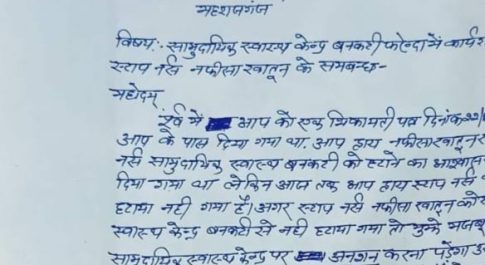 महराजगंज
विषय:- सामुदायिक स्वास्थ्य केन्द्र बनकटी फरेन्दा में कार्यर
स्टाप नर्स नफीसा खातून के सम्बन्ध-
महोदय,
पूर्व में आप को एक शिकायती पत्र दिनांक
आप के पास दिया गया था. आप द्वारा नफीसा खातून
नर्स सामुदायिक स्वास्थ्य बनकटी को हटाने का आश्वासन
दिया गया था लेकिन आज तक आप द्वारा स्टाप नर्स
हटाया नही गया है। अगर स्टाप नर्स नफीसा खातून को
स्वास्थ्य केन्द्र बनकटी से नही हटाया गया तो मुझे मजबू
सामुदायिक स्वास्थ्य केन्द्र पर अनशन करना पड़ेगा